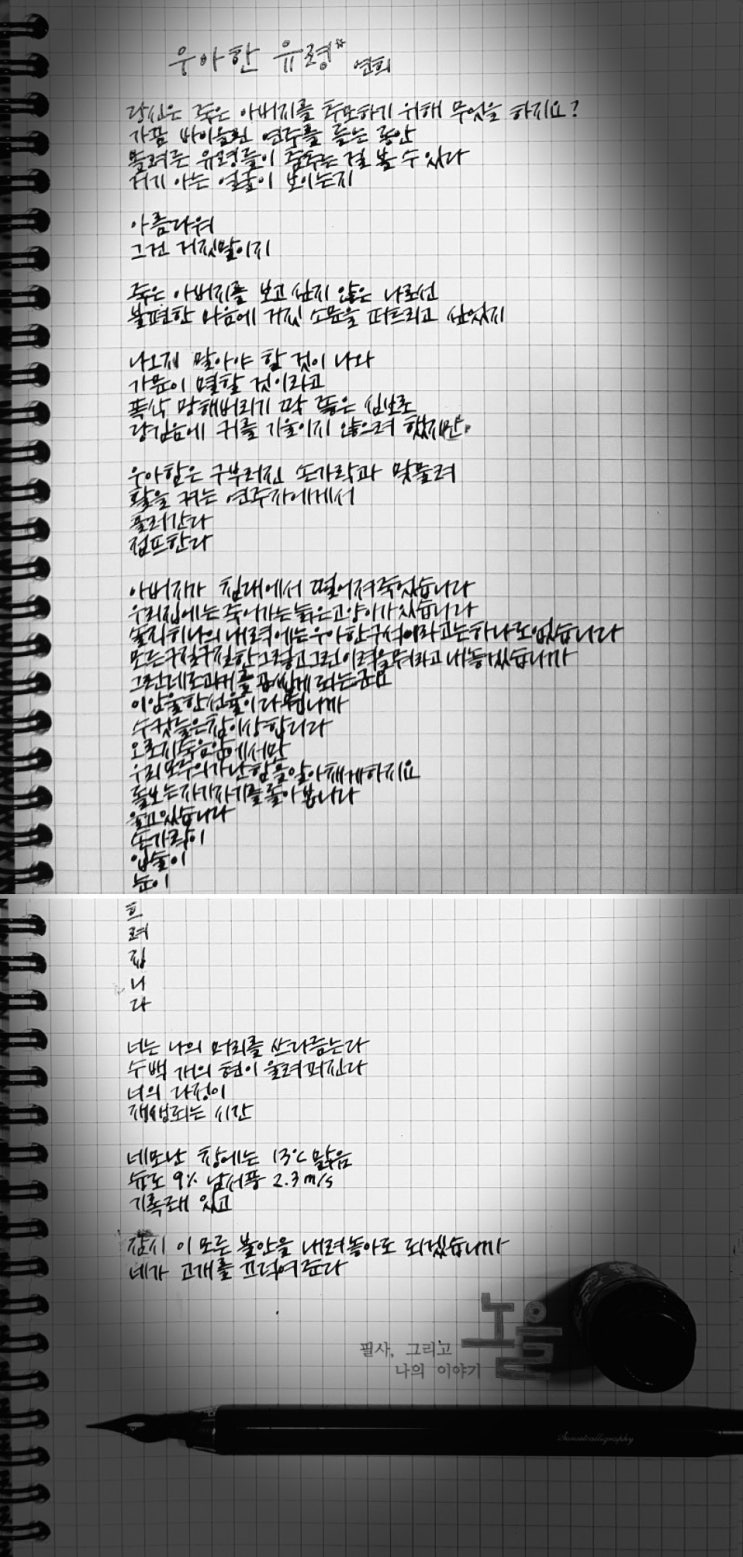 우아한 유령* 연희
당신은 죽은 아버지를 추모하기 위해 무엇을 하지요?
가끔 바이올린 연주를 듣는 동안
몰려든 유령들이 춤추는 걸 볼 수 있다
거기 아는 얼굴이 보이는지
아름다워
그건 거짓말이지
죽은 아버지를 보고 싶지 않은 나로선
불편한 마음에 거짓 소문을 퍼트리고 싶었지
나오지 말아야 할 것이 나와
가문이 멸할 것이라고
폭삭 망해버리기 딱 좋은 심보로
당김음에 귀를 기울이지 않으려 했지만
우아함은 구부러진 손가락과 맞물려
활을 켜는 연주자에게서
흘러간다
점프한다
아버지가 침대에서 떨어져죽었습니다
우리집에는죽어가는늙은고양이가있습니다
솔직히나의내력에는우아한구석이라고는하나도없습니다
모든구질구질한그렇고그런이력을뭐라고내놓겠습니까
그런데도과거를곱씹게되는군요
이암울한선율이다뭡니까
수컷들은참이상합니다
오로지죽음앞에서만
우리모두의가난함을알아채게하지요
돌보는자가자기를돌아봅니다
울고있습니다
손가락이
입술이
눈이
흐
려
집
니
다
너는 나의 머리를 쓰다듬는다
수백 개의 현이 울려퍼진다
너의 다정이
재생되는 시간
네모난 창에는 13℃ 맑음
습도 9% 남서풍 2.3m/s
기록돼 있고
잠시 이 모든 불안을 내려놓아도 되겠습니까
네가 고개를 끄덕여준다
필사, 그리고
나의 이야기
노을
Sunsetcalligraphy